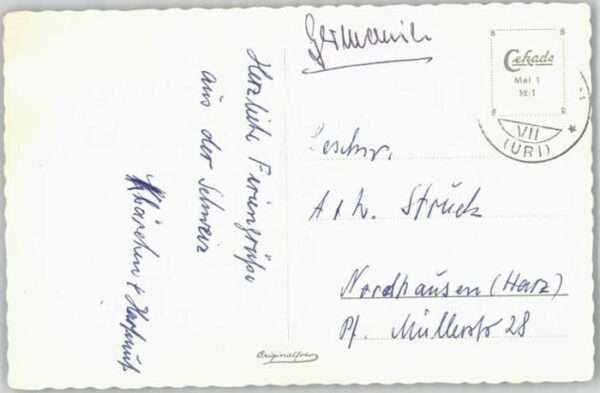 Herzliche Feriengrüße
aus der Schweiz
Germania
Cekade
Mal 1
VII
(URI)
Geschw.
A + W. Strück
Nordhausen (Harz)
Pf. Müllerstr 28
Originalfoto